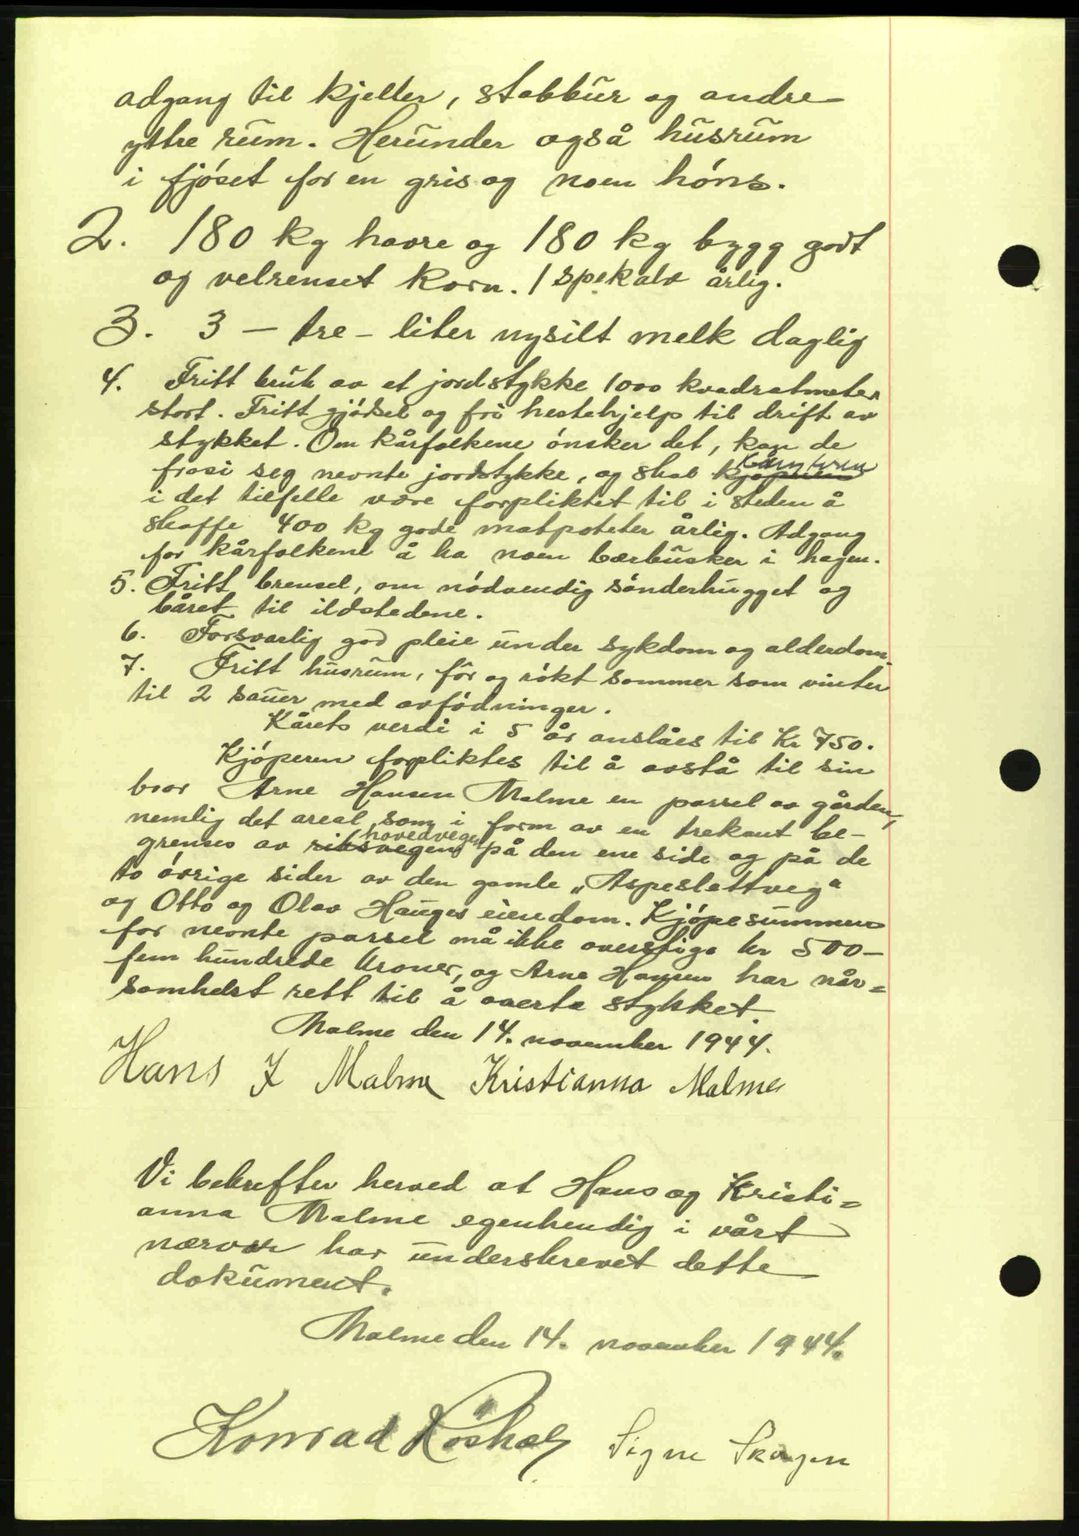 adgang til kjeller, stabbur og andre
yttre rum. Herunder også husrum
i fjøset for en gris og noen høns.
2. 180 kg havre og 180 kg bygg godt
og velrenset korn. 1 spekalv årlig.
3. 3 – tre – liter nysilt melk daglig
4. Fritt bruk av et jordstykke 1000 kvadratmeter
stort. Fritt gjødsel og fri hestehjelp til drift av
stykket. Om kårfolkene ønsker det, kan de
frasi seg nevnte jordstykke, og skal kjøperen
i det tilfelle være forpliktet til i steden å
skaffe 400 kg gode matpoteter årlig. Adgang
for kårfolkene å ha noen bærbusker i hagen.
5. Fritt brensel, om nødvendig sønderhugget og
båret til ildstedene.
6. Forsvarlig god pleie under sykdom og alderdom.
7. Fritt husrum, fôr og røkt sommer som vinter
til 2 sauer med avfødninger.
Kårets verdi i 5 år anslåes til Kr 750.
Kjøperen forpliktes til å avstå til sin
bror Arne Hansen Malme en parsel av gården,
nemlig det areal som i form av en trekant be-
hovedvegen
grenses av riksvegen på den ene side og på de
to øvrige sider av den gamle „Aspeslettveg"
og Otto og Olav Hauges eiendom. Kjøpesummen
for nevnte parsel må ikke overstige kr 500–
fem hundrede kroner, og Arne Hansen har når=
somhelst rett til å overta stykket.
Malme den 14. november 1944.
Hans J Malme Kristianna Malme
Vi bekrefter herved at Hans og Kristi=
anna Malme egenhendig i vårt
nærvær har underskrevet dette
dokument.
Malme den 14. november 1944.
Konrad Signe Skogen